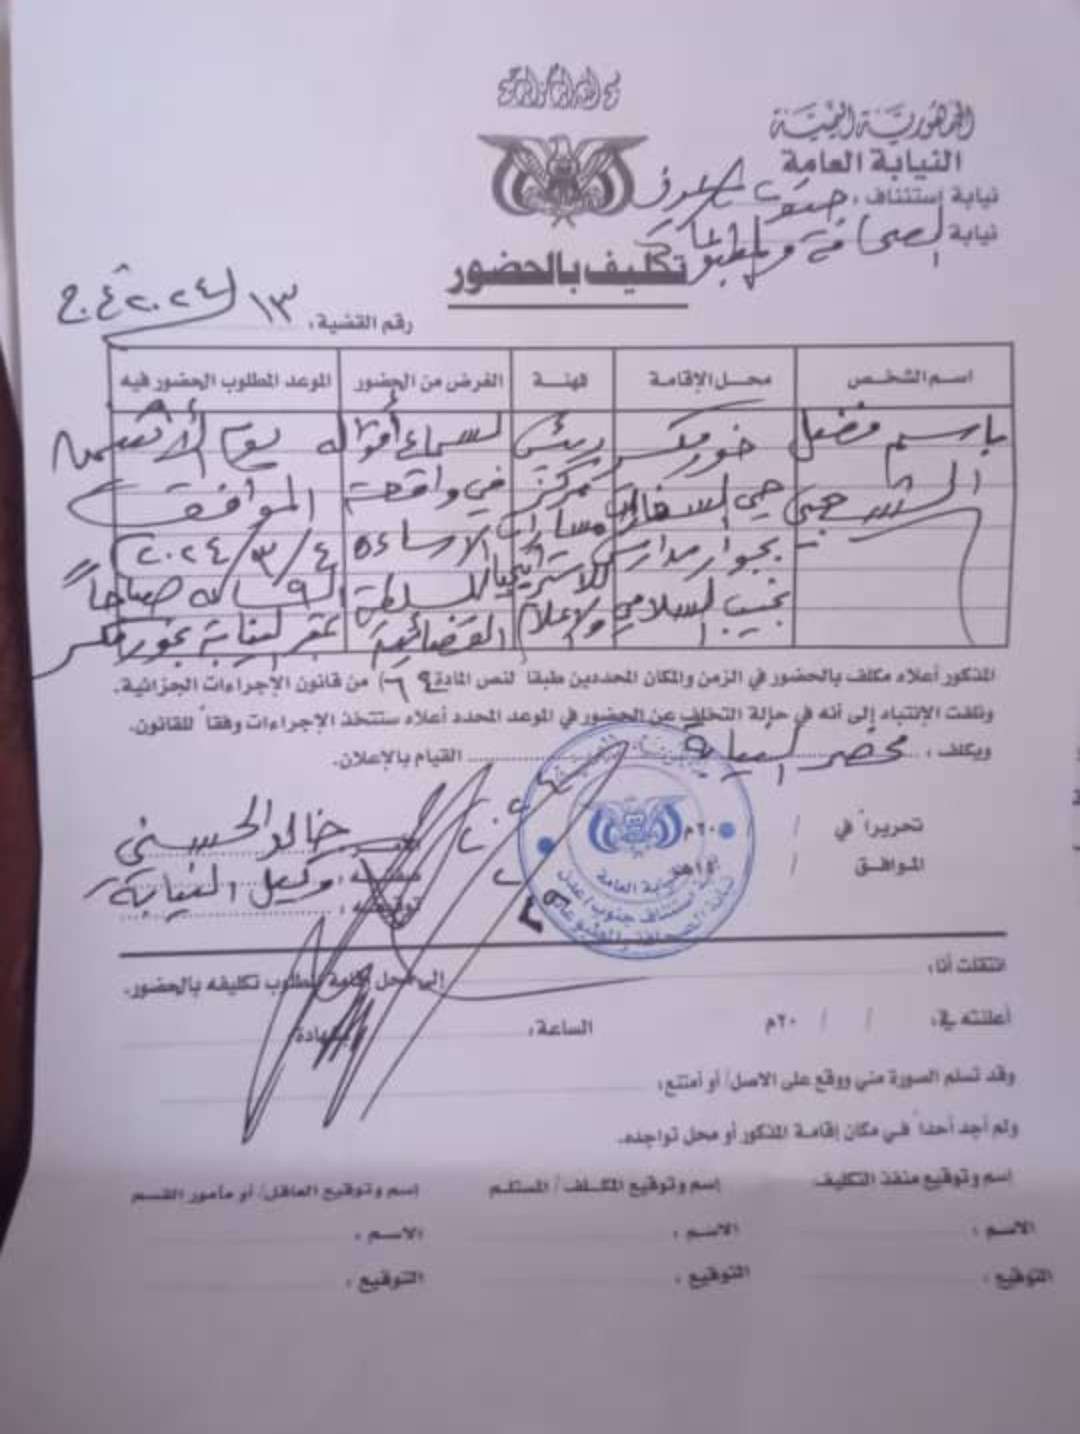 بسم الله الرحمن الرحيم
الجمهورية اليمنية
النيابة العامة
نيابة إستئناف : جنوب عدن
نيابة الصحافة والمطبوعات
تكليف بالحضور
رقم القضية : ١٣ لـ ٢٠٢٤م ج.غ
اسم الشخص محل الإقامة المهنة الغرض من الحضور الموعد المطلوب الحضور فيه
باسم فضل خورمكسر رئيس لسماع أقواله يوم الأثنين
الشعبي حي السفارات مركز في واقعة الموافق
بجوار مدارس مسارات الاساءة ٤/٣/٢٠٢٤
نجيب السلامي للاستراتيجيا للسلطة الساعة ٩ صباحاً
والاعلام القضائية بمقر النيابة بخورمكسر
المذكور أعلاه مكلف بالحضور في الزمن والمكان المحددين طبقاً لنص المادة ( ٦٩ ) من قانون الإجراءات الجزائية.
ونلفت الإنتباه إلى أنه في حالة التخلف عن الحضور في الموعد المحدد أعلاه ستتخذ الإجراءات وفقاً للقانون.
ويكلف : محضر النيابة القيام بالإعلان.
تحريراً في / / ٢٠م
الموافق / / ١٤هـ
خالد الحسني
وكيل النيابة
توقيعه :
النيابة العامة
نيابة استئناف جنوب عدن
نيابة الصحافة والمطبوعات
انتقلت أنا: إلى محل إقامة المطلوب تكليفه بالحضور.
أعلنته في: / / ٢٠م الساعة: بشهادة/
وقد تسلم الصورة مني ووقع على الاصل/ أو أمتنع:
ولم أجد أحداً في مكان إقامة المذكور أو محل تواجده.
إسم وتوقيع منفذ التكليف إسم وتوقيع المكلف/ المستلم إسم وتوقيع العاقل/ أو مأمور القسم
الاسم : الاسم : الاسم :
التوقيع : التوقيع : التوقيع :